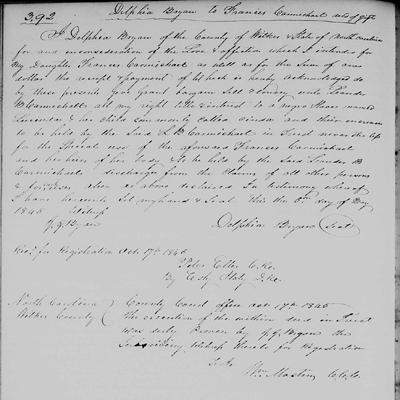 392 Delphia Bryan to Frances Carmichael deed of gift
I Delphia Bryan of the County of Wilkes & State of North Carolina
for and in consideration of the Love & affection which I intend for
My Daughter Frances Carmichael as well as for the Sum of one
dollar the receipt & payment of Which is hereby acknowledged do
by these presents Give Grant bargain Sell & Convey unto
B Carmichael all my right title & interest to a negro Slave named
Lucinda & her child commonly called and their increase
to be held by the Said B Carmichael in Trust nevertheless
for the Special use of the aforesaid Frances Carmichael
and her heirs of her body & to be held by the Said B
Carmichael discharged from the Claims of all other persons
& for Uses above declared In testimony whereof
I have hereunto Set my hand & Seal this the day of
1846
Delphia Bryan Seal
Bryan
Rec'd for Registration Oct. 17th 1846
Peter Eller C.Re.
By Esly Staly D.Re.
North Carolina
Wilkes County
County Court office Oct. 17th 1846
The execution of the within deed in Trust
was duly Proven by Bryan the
Subscribing Witness thereto for Registration
Wm Mastin C.C.C.